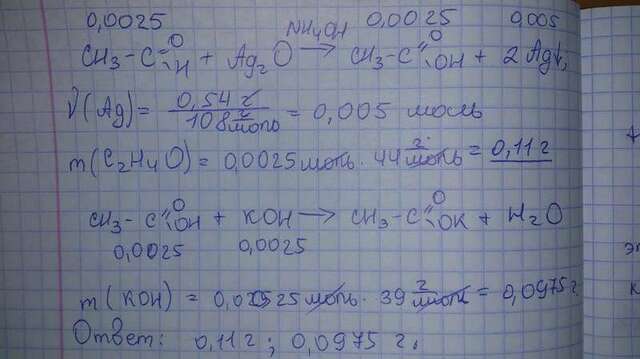 0,0025 0,0025 0,005
CH₃-C(=O)-H + Ag₂O —NH₄OH→ CH₃-C(=O)-OH + 2Ag↓
ν(Ag) = 0,54 г / 108 г/моль = 0,005 моль
m(C₂H₄O) = 0,0025 моль · 44 г/моль = 0,11 г
CH₃-C(=O)-OH + KOH → CH₃-C(=O)-OK + H₂O
0,0025 0,0025
m(KOH) = 0,0025 моль · 39 г/моль = 0,0975 г
Ответ: 0,11 г; 0,0975 г.